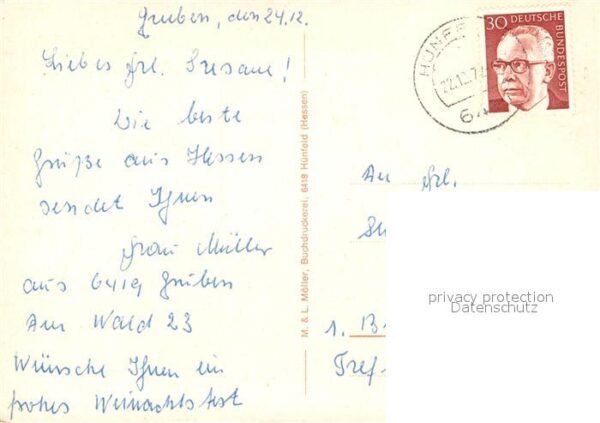 Gruben, den 24.12.
Liebes Frl. Susane!
Die beste
Grüße aus Hessen
sendet Ihnen
Frau Müller
aus 6419 Gruben
Am Wald 23
Wünsche Ihnen ein
frohes Weinachtsfest
M. & L. Möller, Buchdruckerei, 6418 Hünfeld (Hessen)
30 DEUTSCHE
BUNDESPOST
HÜNFE
22.12.7
64
An Frl.
1. B
Tref-
privacy protection
Datenschutz